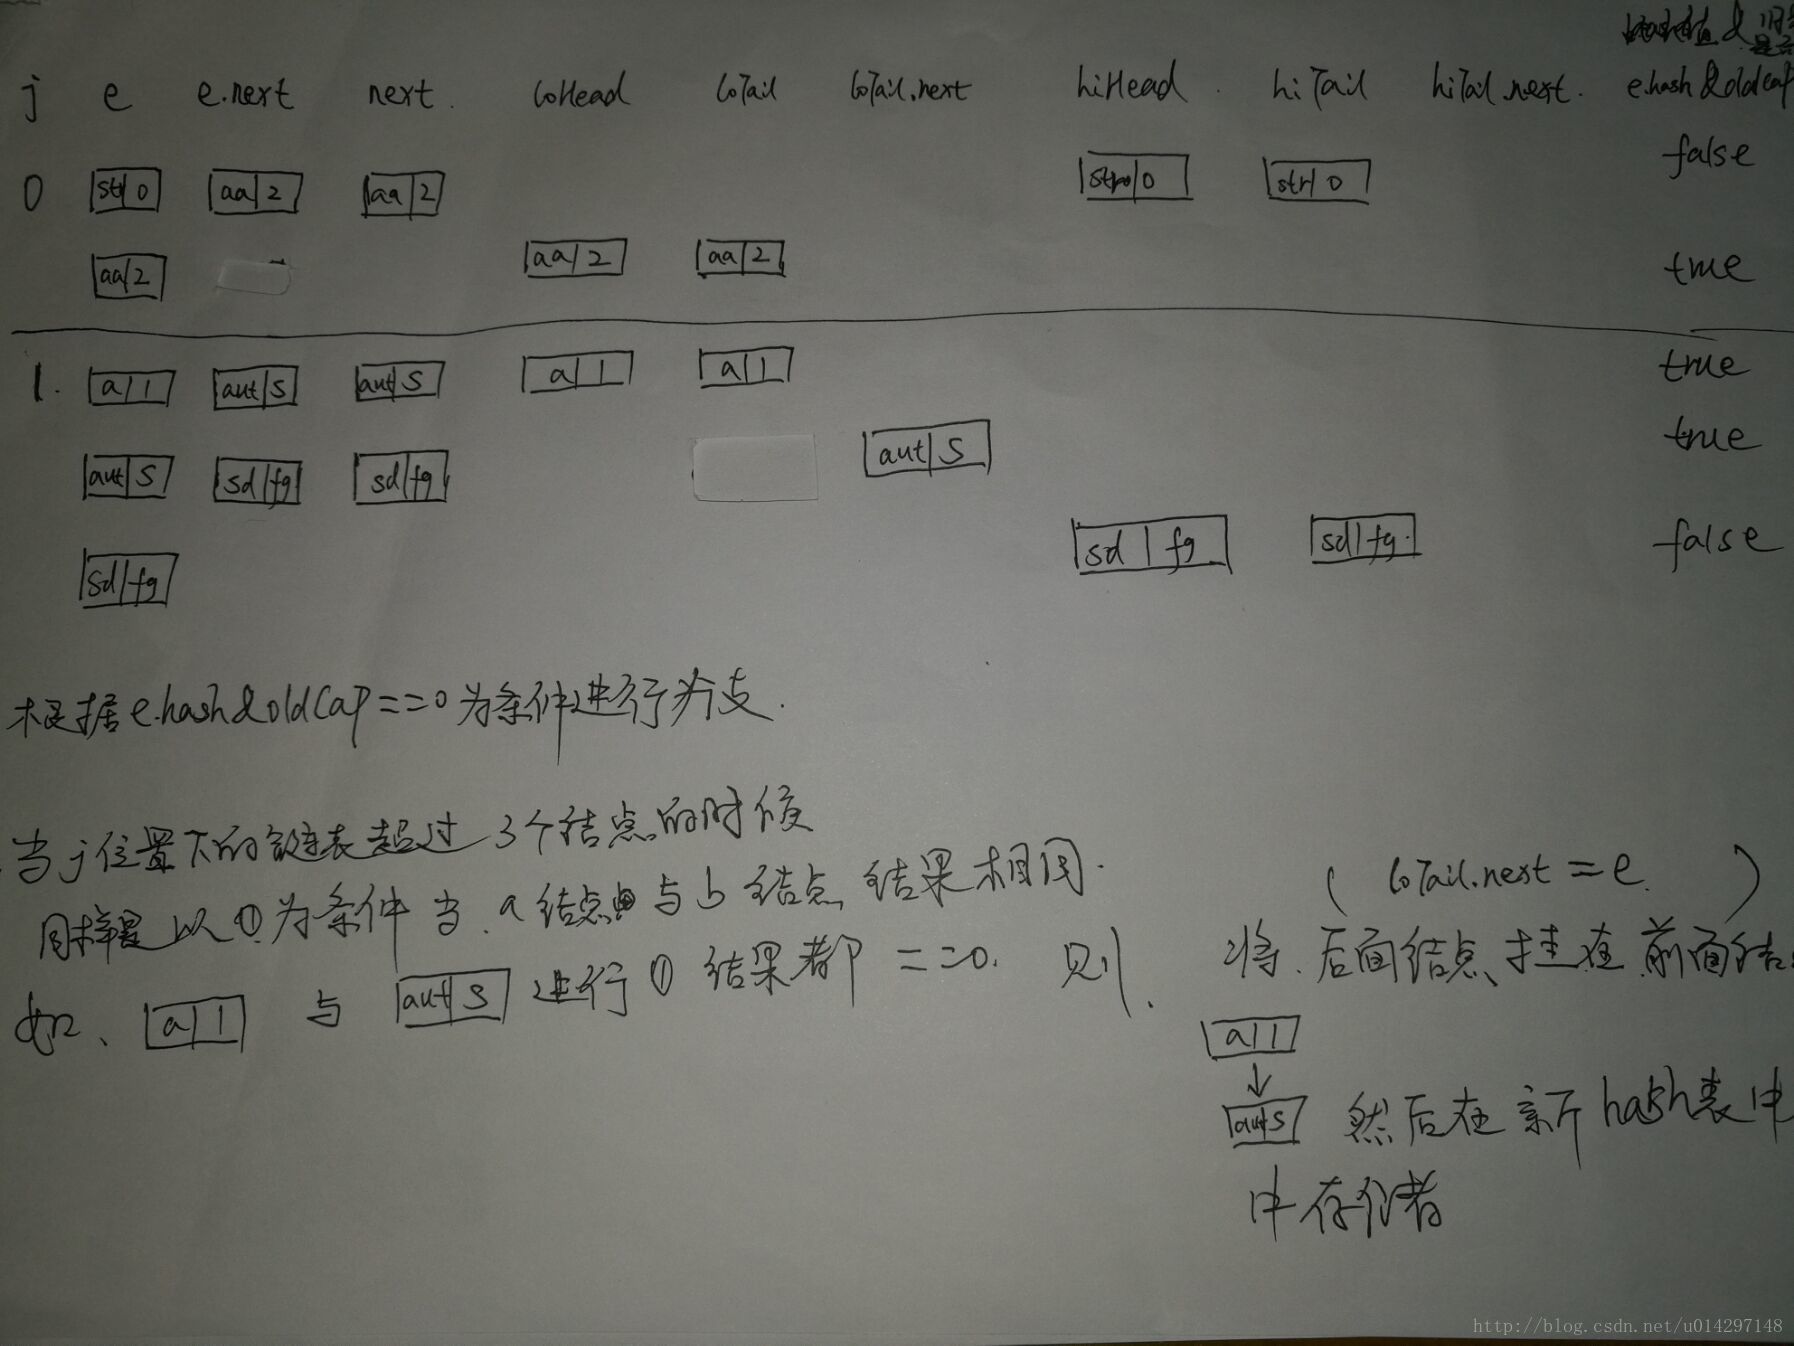 j e e.next next. loHead loTail loTail.next hiHead. hiTail hiTail.next. e.hash&oldCap
0 str|0 aa|2 aa|2 str|0 str|0 false
aa|2 aa|2 aa|2 true
1. a|1 aut|S aut|S a|1 a|1 true
aut|S sd|fg sd|fg aut|S true
sd|fg sd|fg sd|fg. false
根据e.hash&oldCap==0为条件进行分支.
当j位置下的链表超过3个结点的时候
同样是以①为条件当.a结点与b结点结果相同.
(loTail.next=e.)
如、a|1与aut|S进行①结果都==0.则.将.后面结点挂在前面结
a|1
↓
aut|S 然后在新hash表中
中存储着
http://blog.csdn.net/u014297148